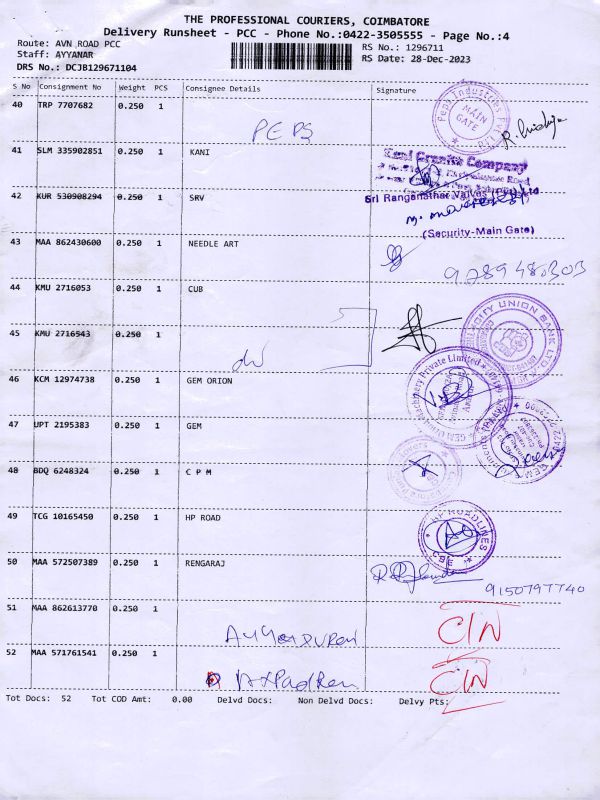 THE PROFESSIONAL COURIERS, COIMBATORE
Delivery Runsheet - PCC - Phone No.:0422-3505555 - Page No.:4
Route: AVN ROAD PCC RS No.: 1296711
Staff: AYYANAR RS Date: 28-Dec-2023
DRS No.: DCJB129671104
S No Consignment No Weight PCS Consignee Details Signature
40 TRP 7707682 0.250 1
PEPS
MAIN GATE
41 SLM 335902851 0.250 1 KANI
Kani Granite Company
42 KUR 530908294 0.250 1 SRV
Sri Ranganathar Valves (P) Ltd
(Security-Main Gate)
43 MAA 862430600 0.250 1 NEEDLE ART
9789480303
44 KMU 2716053 0.250 1 CUB
CITY UNION BANK LTD.
45 KMU 2716543 0.250 1
46 KCM 12974738 0.250 1 GEM ORION
Machinery Private Limited
47 UPT 2195383 0.250 1 GEM
48 BDQ 6248324 0.250 1 C P M
49 TCG 10165450 0.250 1 HP ROAD
HP ROADLINES
CBE
50 MAA 572507389 0.250 1 RENGARAJ
9150797740
51 MAA 862613770 0.250 1
C/N
52 MAA 571761541 0.250 1
C/N
Tot Docs: 52 Tot COD Amt: 0.00 Delvd Docs: Non Delvd Docs: Delvy Pts: